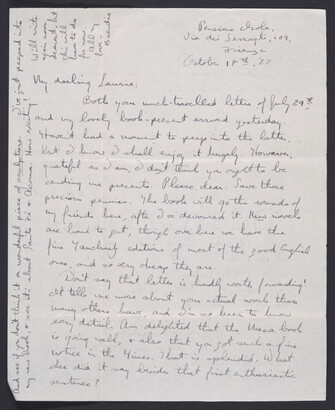 Pensione Isola,
Via dei Serragli, 109,
Firenze
October 18th, 22
My darling Laurie,
Both your much-travelled letter of July 29th
and my lovely book-present arrived yesterday.
Haven't had a moment to peep into the latter
but I know I shall enjoy it hugely. However,
grateful as I am, I don't think you ought to be
sending me presents. Please, dear. Save those
precious pennies. The book will go the rounds of
my friends here, after I've devoured it. New novels
are hard to get, though over here we have the
fine Tauchnitz editions of most of the good English
ones, and so very cheap they are.
Don't say that letter is hardly worth forwarding!
It tells me more about your actual work than
many others have, and I'm so keen to know
every detail. Am delighted that the book
is going well, & also that you got such a fine
notice in the Times. That is splendid. What
else did it say besides that first enthusiastic
sentence?
And see if you don't think it a wonderful piece of sculpture. I've just peeped into
my new book, & see it's about Santa Fe & Acoma. How exciting!
Will write
you soon
again
this will
have to do
for now
All my
love